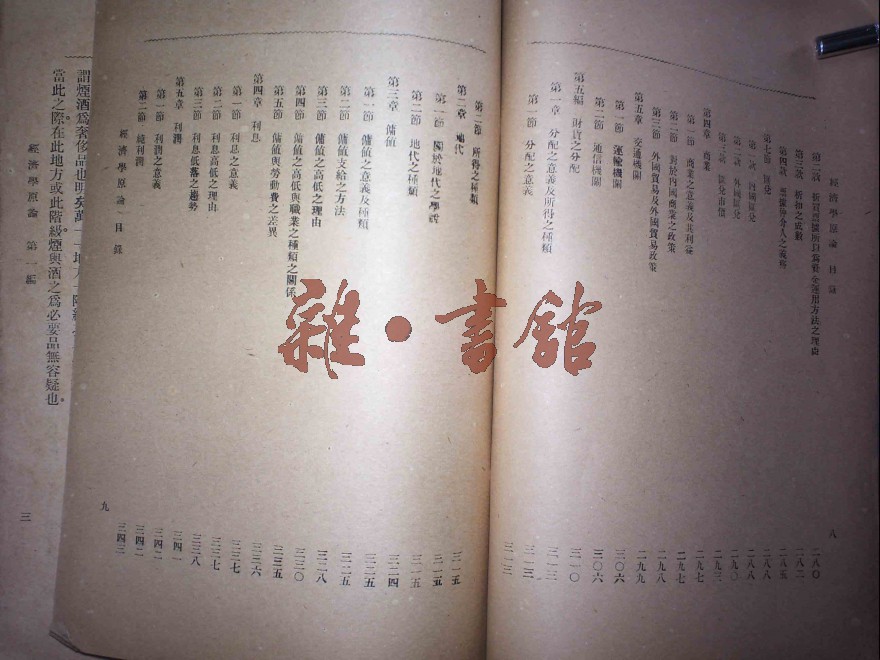 經濟學原論 目錄
八
第二款 折賣票據所以爲資金運用方法之理由 二八〇
第三款 折扣之成數 二八二
第四款 票據仲介人之義務 二八五
第七節 匯兌 二八八
第一款 內國匯兌 二八八
第二款 外國匯兌 二九〇
第三款 匯兌市價 二九三
第四章 商業 二九七
第一節 商業之意義及其利益 二九七
第二節 對於內國商業之政策 二九八
第三節 外國貿易及外國貿易政策 二九九
第五章 交通機關 三〇六
第一節 運輸機關 三〇六
第二節 通信機關 三一〇
第五編 財貨之分配 三一三
第一章 分配之意義及所得之種類 三一三
第一節 分配之意義 三一三
第二節 所得之種類 三一五
第二章 地代 三一五
第一節 關於地代之學說 三一五
第二節 地代之種類
第三章 傭值 三二四
第一節 傭值之意義及種類 三二五
第二節 傭值支給之方法 三二五
第三節 傭值之高低之理由 三二八
第四節 傭值之高低與職業之種類之關係 三三〇
第五節 傭值與勞動費之差異 三三五
第四章 利息 三三六
第一節 利息之意義 三三七
第二節 利息高低之理由 三三七
第三節 利息低落之趨勢 三三八
第五章 利潤 三四一
第一節 利潤之意義 三四二
第二節 純利潤 三四二
三四三
經濟學原論 目錄
九
謂煙酒爲奢侈品也明矣萬一
當此之際在此地方或此階級煙與酒之爲必要品無容疑也。
經濟學原論 第一編
三
雜·書館